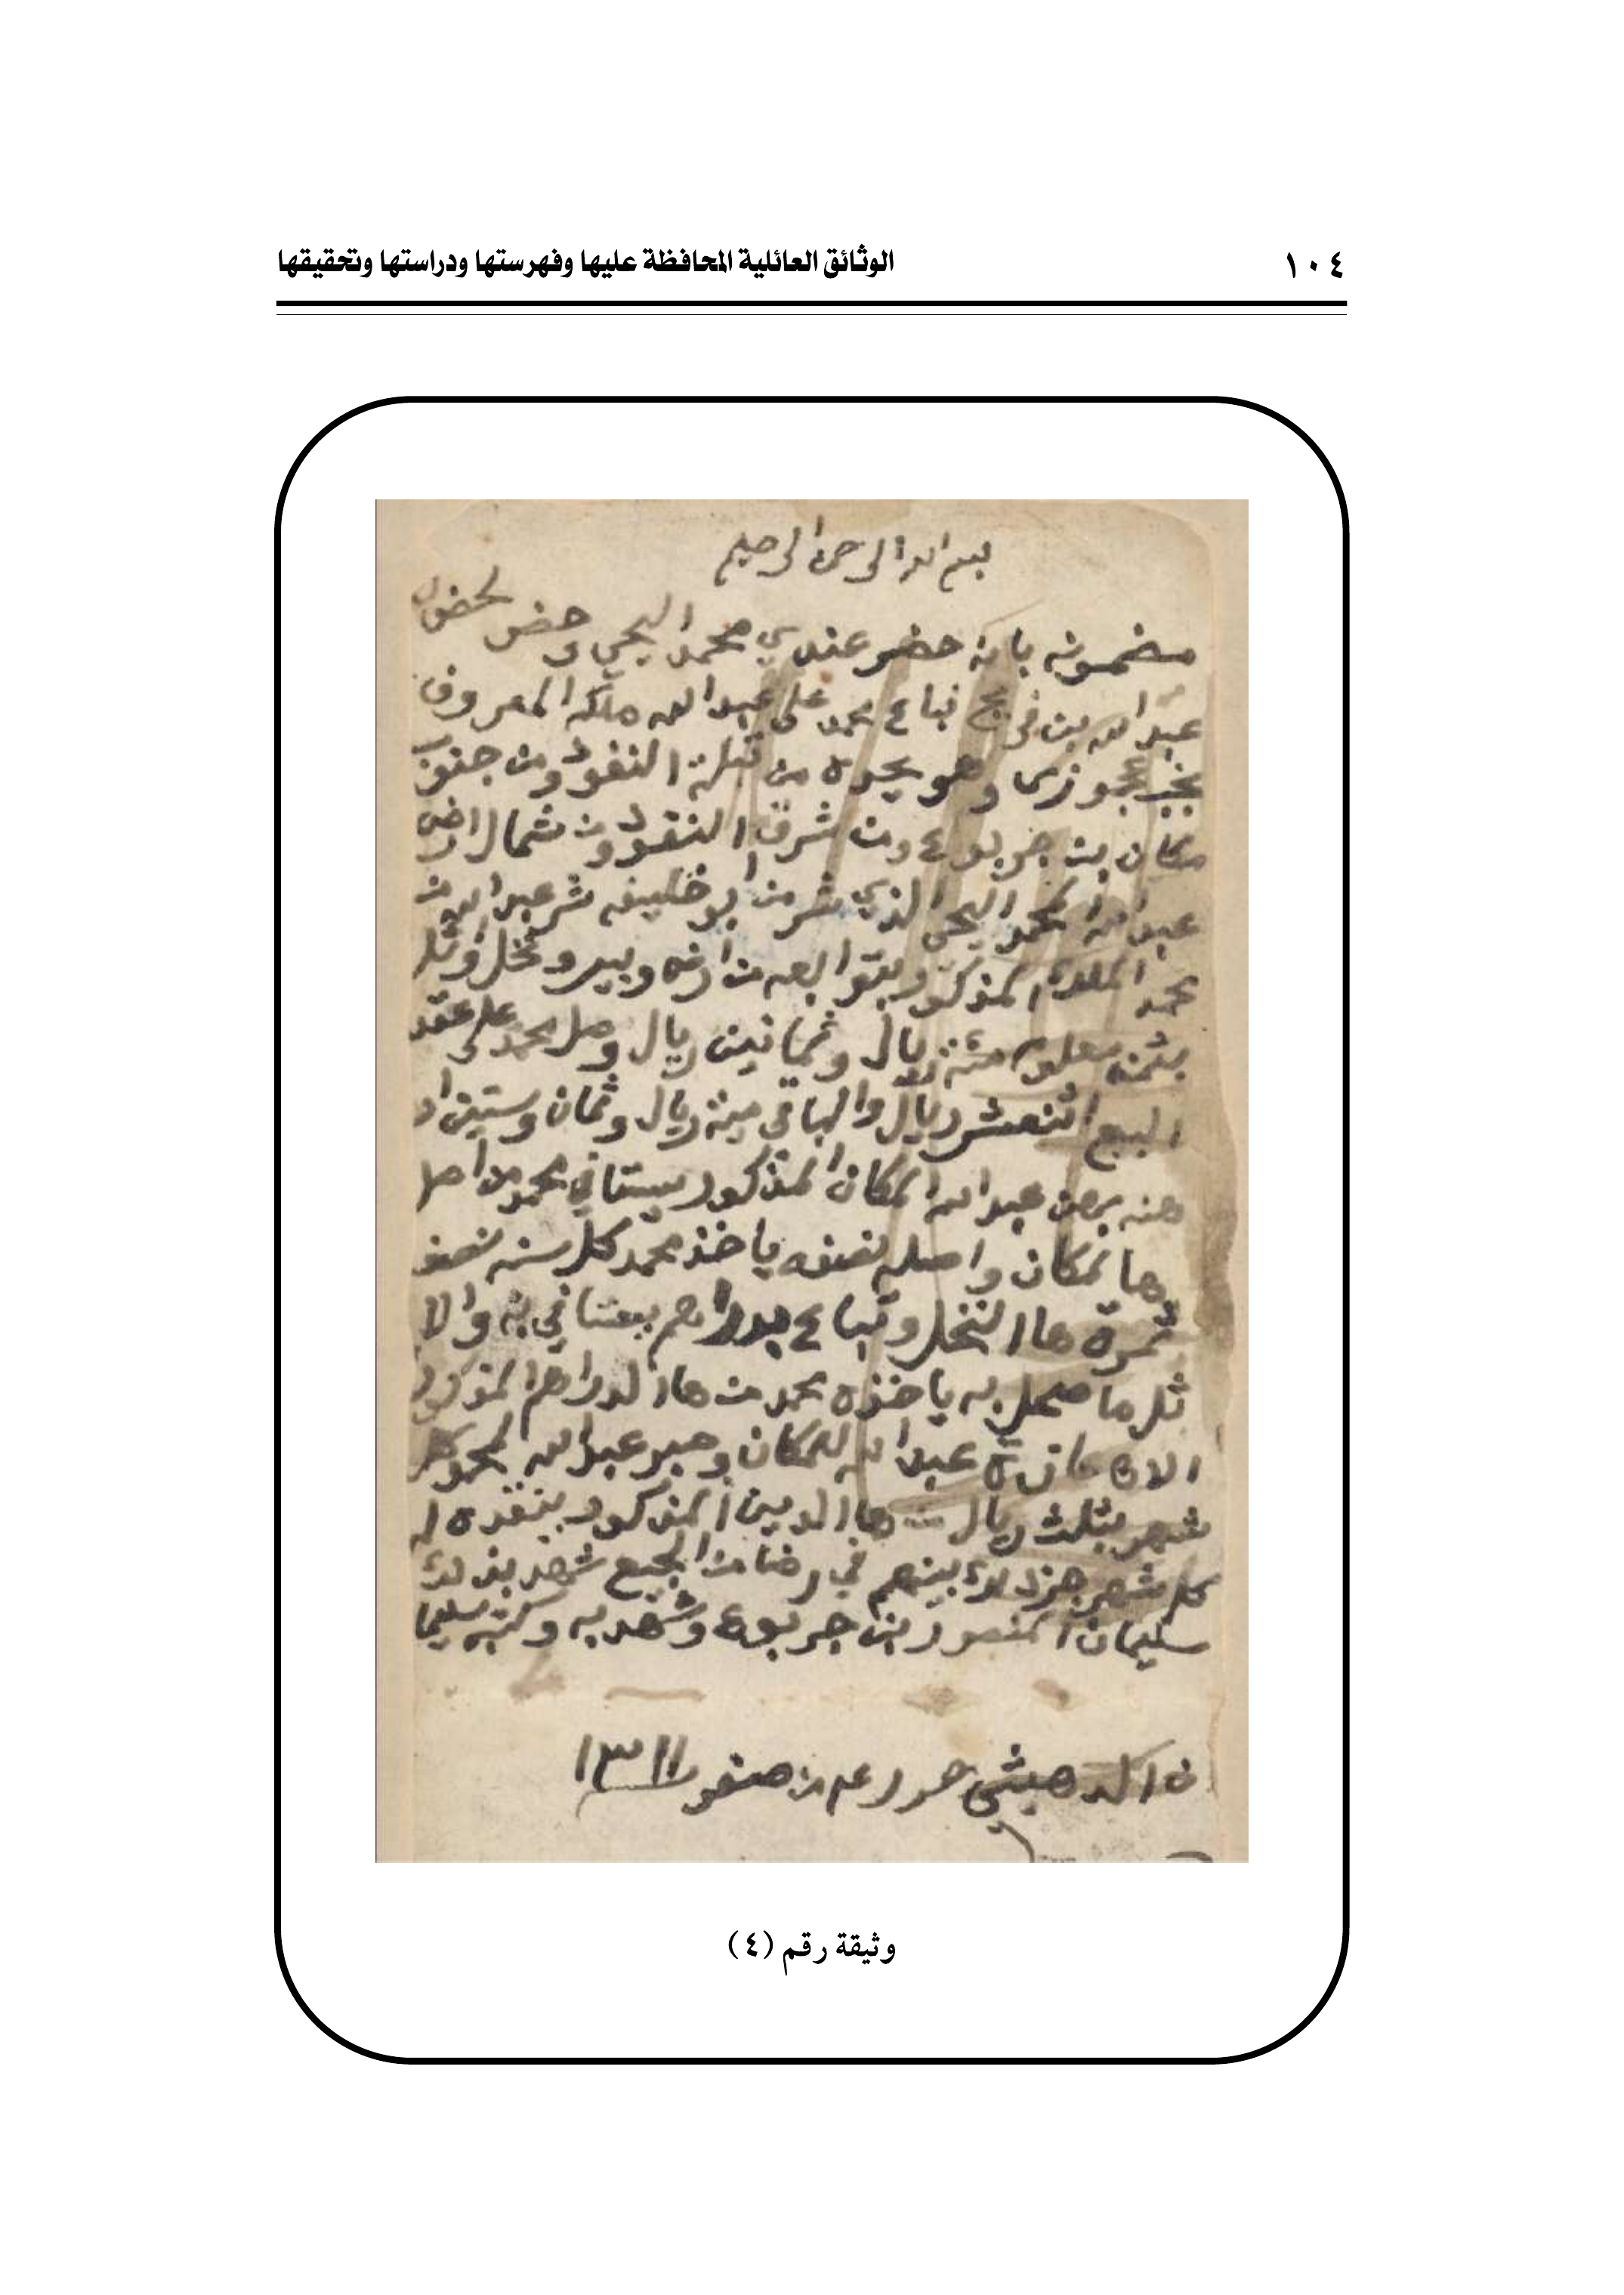 ١٠٤ الوثائق العائلية المحافظة عليها وفهرستها ودراستها وتحقيقها
بسم الله الرحمن الرحيم
مضمونه بانه حضر عندي محمد اليحيى وحضر لحضور
عبدالله بن فرج فباع محمد على عبدالله ملكه المعروف
بخب وهو يحده من قبلة النفود ومن جنوب
مكان بن جربوع ومن شرق النفود ومن شمال ارض
عبدالله محمد اليحيى الذي شر من ابو خليفه شر عبدالله من
محمد الملك المذكور بتوابعه من ارض وبير ونخل واثل
بثمن معلوم مئة ريال وثمانين ريال وصل محمد على عقد
البيع اثنعشر ريال والباقي مية ريال وثمان وستين
رهن عبدالله المكان المذكور محمد من اصل
هالمكان واصله نصفه ياخذ محمد كل سنه نصف
ثمرة هاالنخل وتباع بدراهم به والا
ثل ما حصل به ياخذه محمد من هاالدراهم المذكور
الا عبدالله للمكان وصبر عبدالله لمحمد كل
شهر بثلث ريال من هاالدين المذكور ينقده له
كل شهر بينهم في رضا من الجميع شهد بذلك
سليمان المنصور ابن جربوع وشهد به وكتبه سليما
ن الدهيشي حرر من صفر ١٣١١
وثيقة رقم (٤)